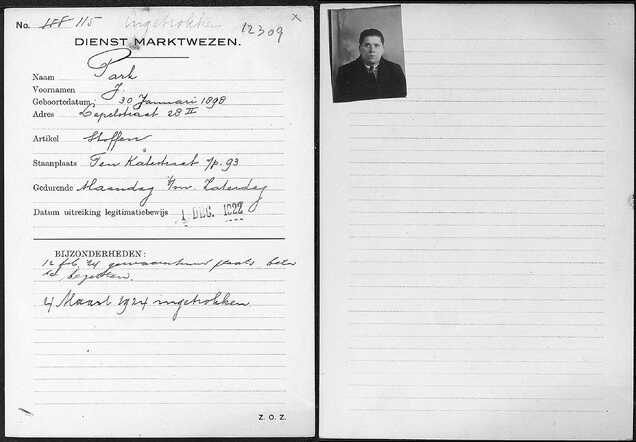 No. 115 ingetrokken 12309 x
DIENST MARKTWEZEN.
Naam Park
Voornamen J.
Geboortedatum: 30 Januari 1898
Adres Lepelstraat 28 II
Artikel Stoffen
Staanplaats Ten Katestraat 7p. 93
Gedurende Maandag t/m. Zaterdag
Datum uitreiking legitimatiebewijs 1 DEC. 1922
BIJZONDERHEDEN:
12 feb. 24 gewaarschuwd plaats beter
te bezetten.
4 Maart 1924 ingetrokken
Z. O. Z.